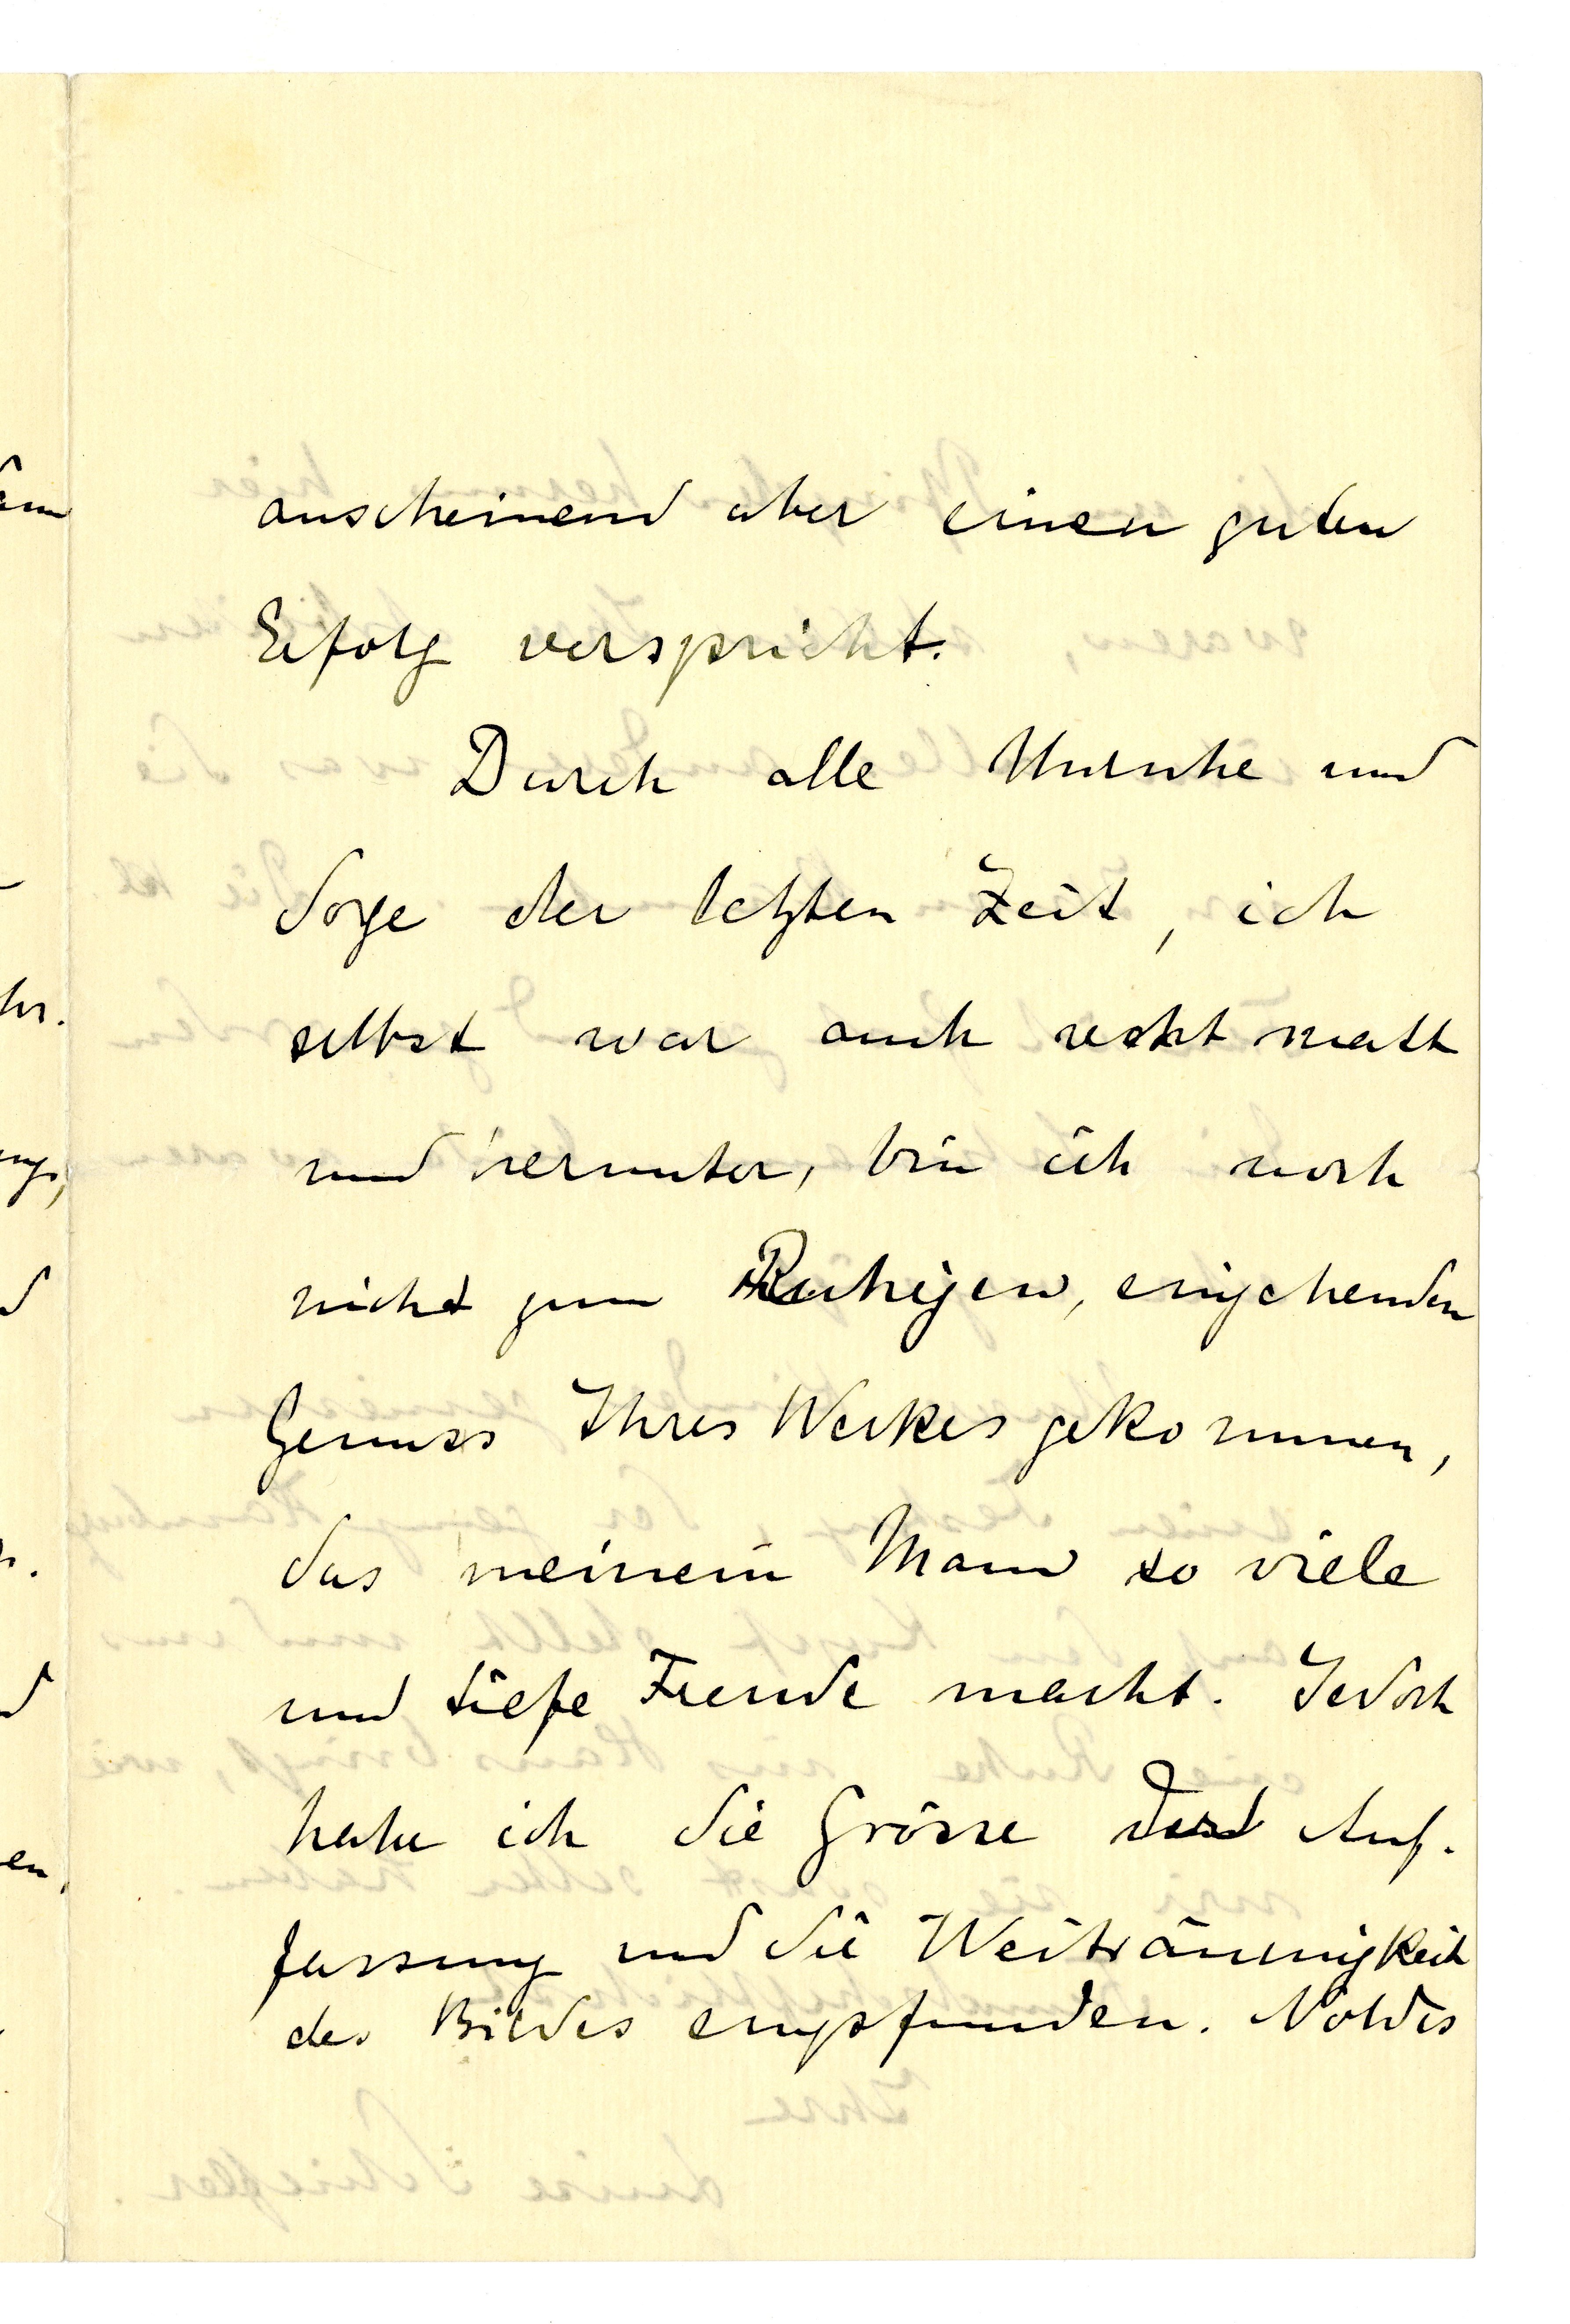 anscheinend aber einen guten
Erfolg verspricht.
Durch alle Unruhe und
Sorge der letzten Zeit, ich
selbst war auch recht matt
und herunter, bin ich noch
nicht zum Ruhigen, eingehenden
Genuss Ihres Werkes gekommen,
das meinem Mann so viele
und tiefe Freude macht. Jedoch
habe ich die Grösse der Auf-
fassung und die Weiträumigkeit
des Bildes empfunden. Noldes